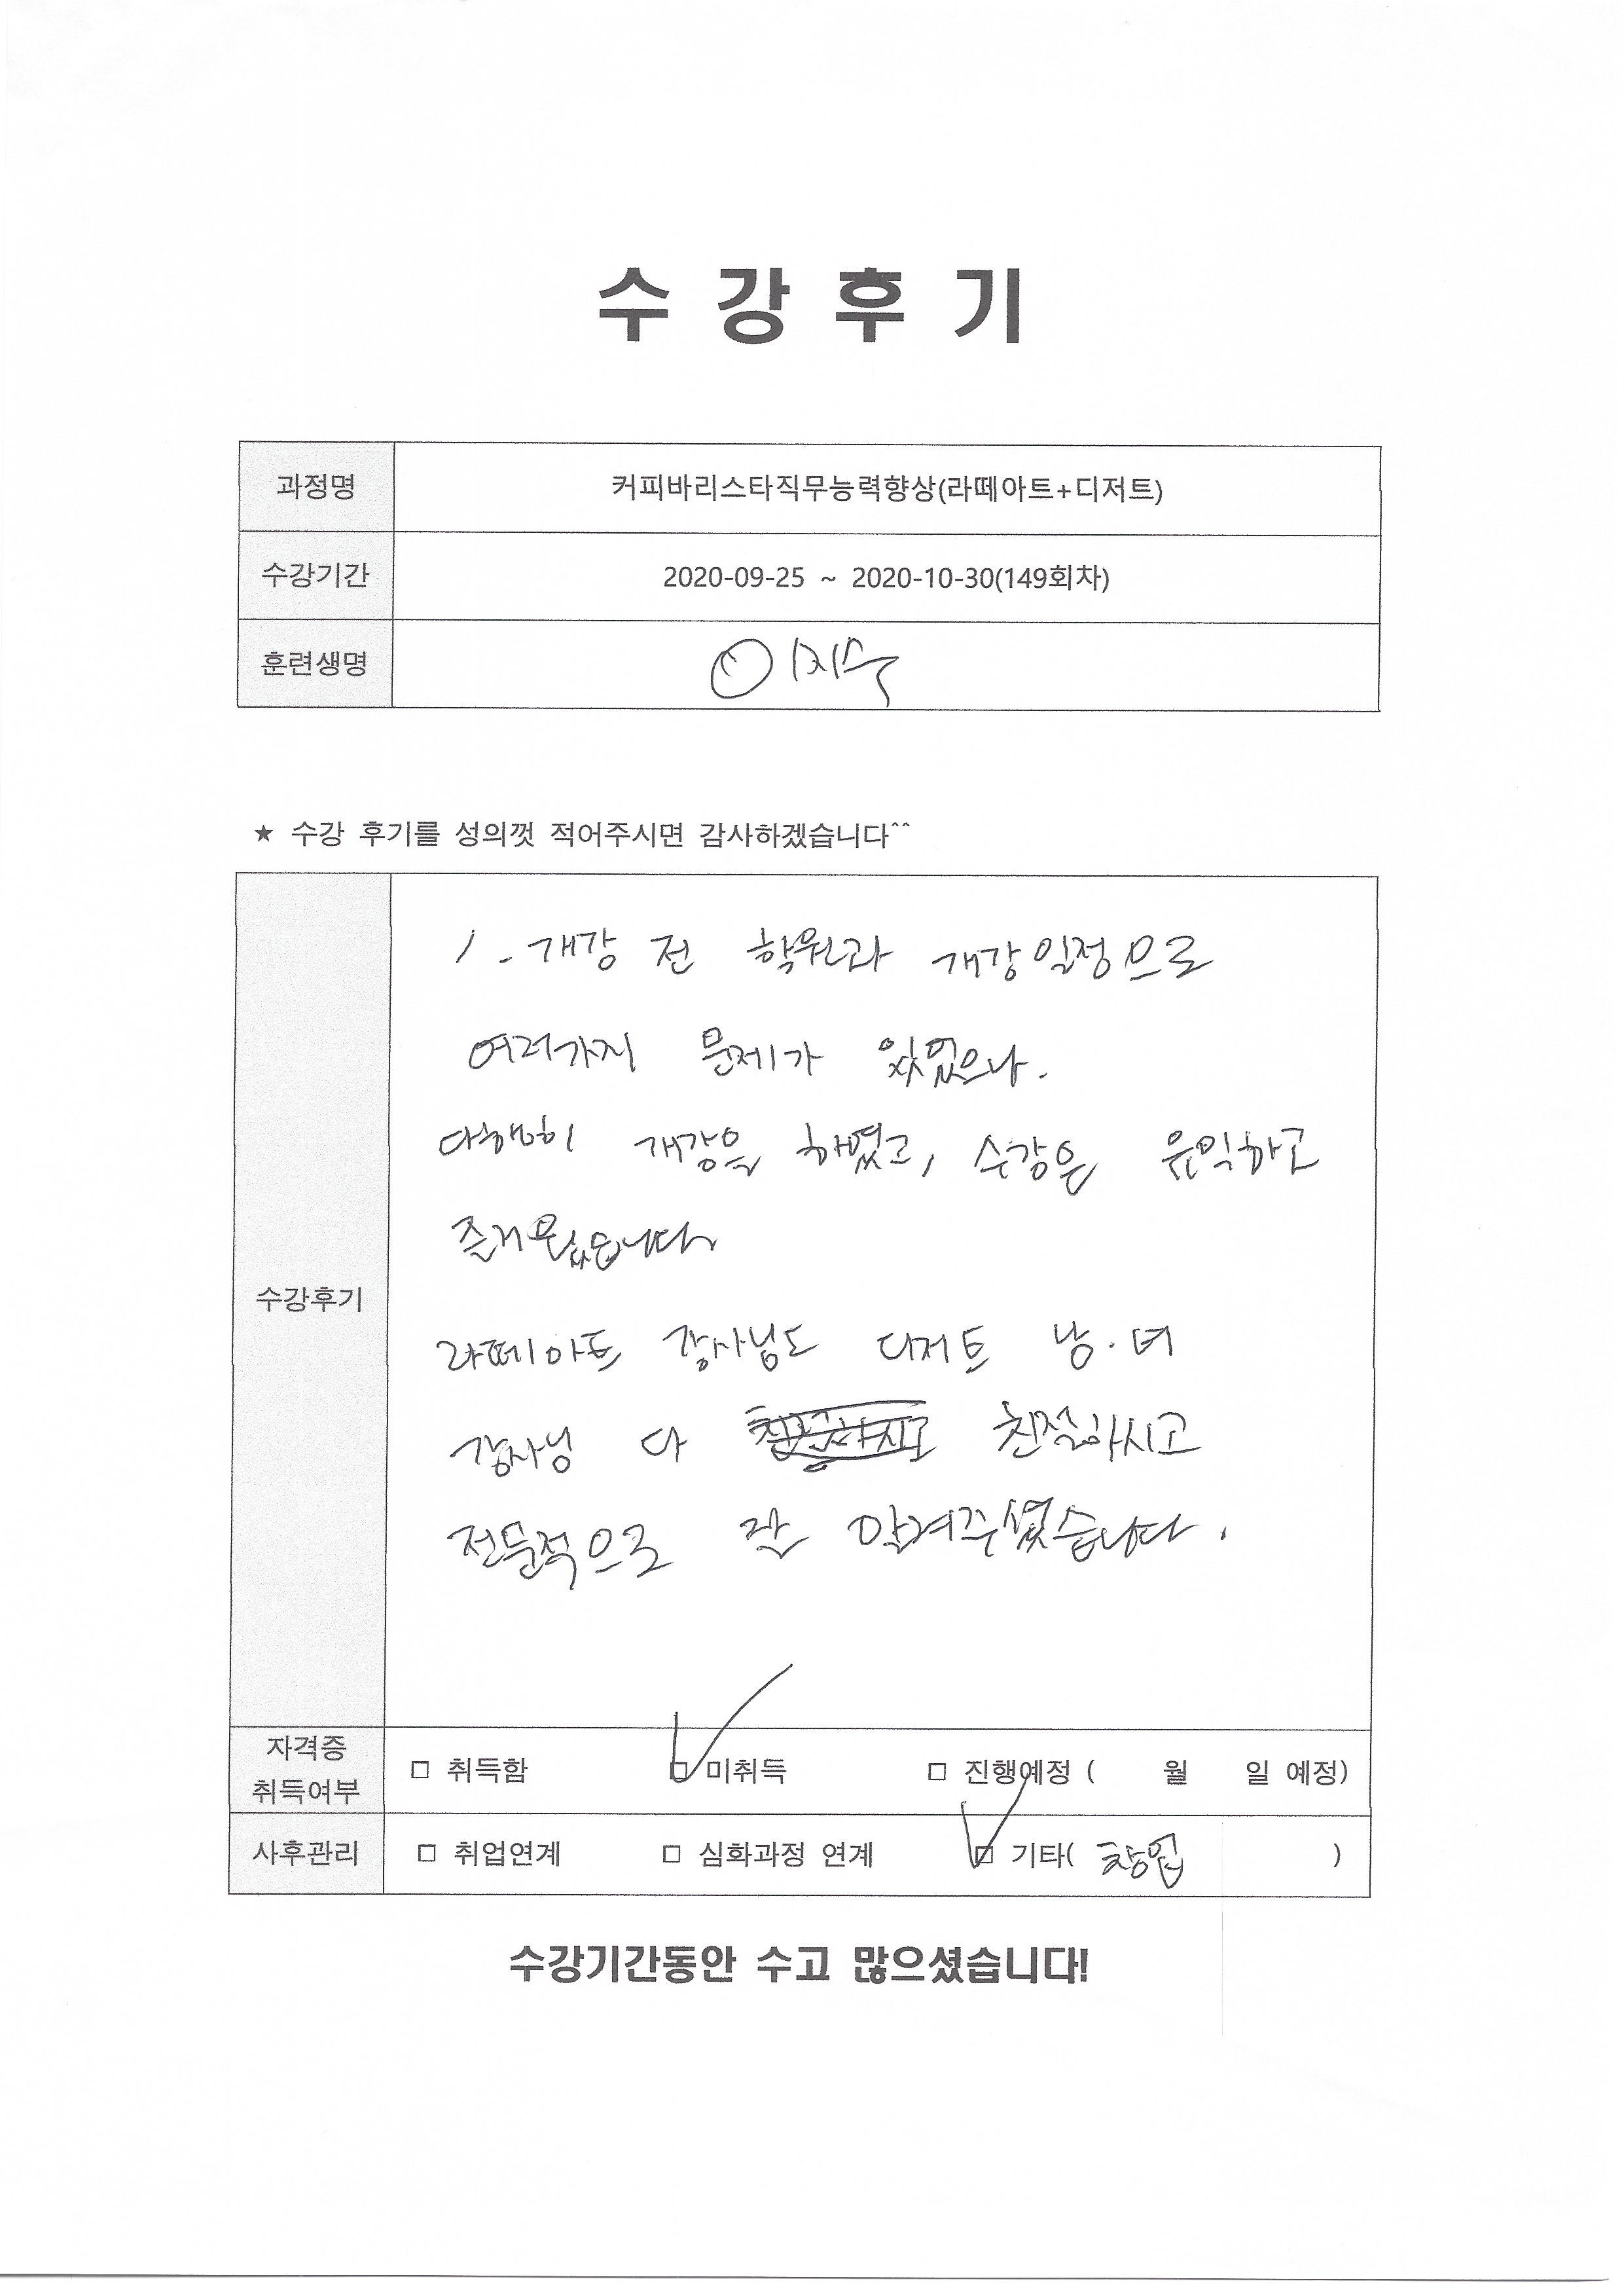 수 강 후 기
과정명 커피바리스타직무능력향상(라떼아트+디저트)
수강기간 2020-09-25 ~ 2020-10-30(149회차)
훈련생명 이지수
★ 수강 후기를 성의껏 적어주시면 감사하겠습니다^^
수강후기
1. 개강 전 학원과 개강일정으로
여러가지 문제가 있었으나.
다행히 개강을 하였고, 수강은 유익하고
즐거웠습니다
라떼아트 강사님도 디저트 남.녀
강사님 다 친절하시고
전문적으로 잘 알려주셨습니다.
자격증
취득여부
□ 취득함 □ 미취득 □ 진행예정 ( 월 일 예정)
사후관리 □ 취업연계 □ 심화과정 연계 □ 기타( 창업 )
수강기간동안 수고 많으셨습니다!